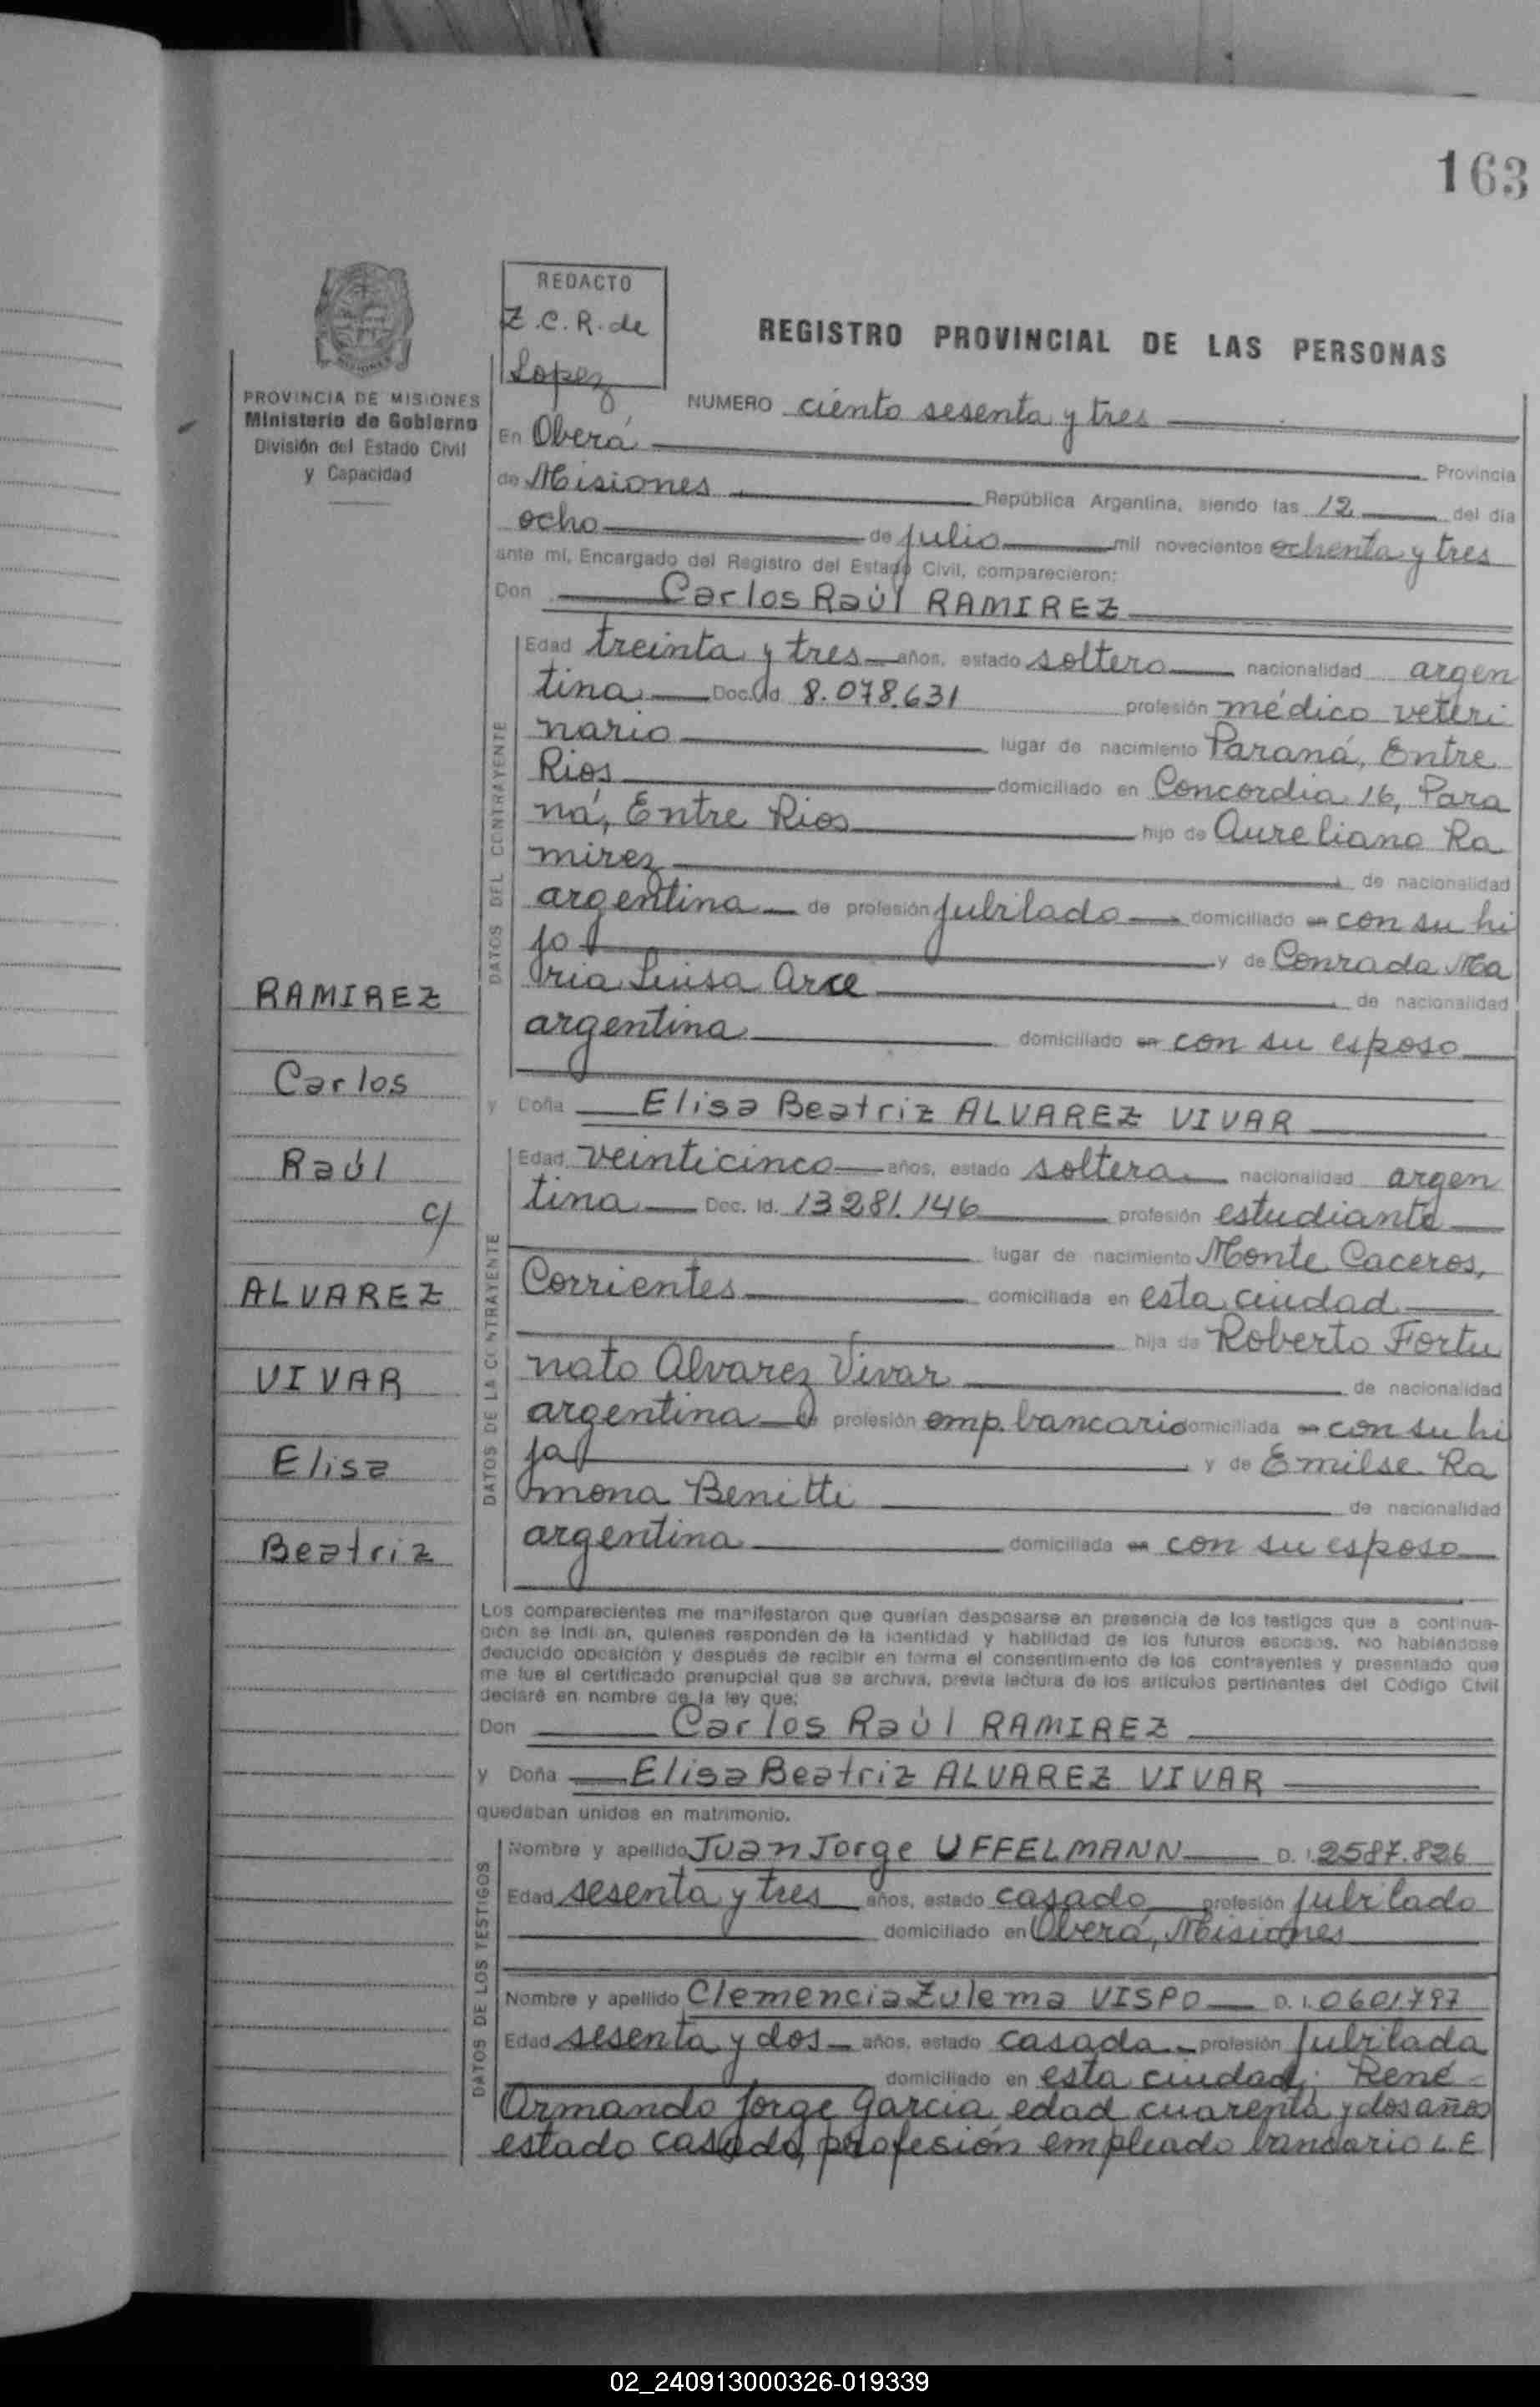 163
REDACTO
Z.C.R. de
Lopez
REGISTRO PROVINCIAL DE LAS PERSONAS
PROVINCIA DE MISIONES
Ministerio de Gobierno
División del Estado Civil
y Capacidad
NUMERO ciento sesenta y tres
En Oberá Provincia
de Misiones República Argentina, siendo las 12 del día
ocho de julio mil novecientos ochenta y tres
ante mi, Encargado del Registro del Estado Civil, comparecieron:
Don Carlos Raúl RAMIREZ
DATOS DEL CONTRAYENTE
Edad treinta y tres años, estado soltero nacionalidad argen
tina Doc. Id. 8.078.631 profesión médico veteri
nario lugar de nacimiento Paraná, Entre
Rios domiciliado en Concordia 16, Para
ná, Entre Rios hijo de Aureliano Ra
mirez de nacionalidad
argentina de profesión jubilado domiciliado en con su hi
jo y de Conrada Ma
ria Luisa Arce de nacionalidad
argentina domiciliado en con su esposo
RAMIREZ
Carlos
Raúl
c/
ALVAREZ
VIVAR
Elisa
Beatriz
y Doña Elisa Beatriz ALVAREZ VIVAR
DATOS DE LA CONTRAYENTE
Edad veinticinco años, estado soltera nacionalidad argen
tina Doc. Id. 13281.146 profesión estudiante
lugar de nacimiento Monte Caceros,
Corrientes domiciliada en esta ciudad
hija de Roberto Fortu
nato Alvarez Vivar de nacionalidad
argentina de profesión emp. bancario domiciliada en con su hi
ja y de Emilse Ra
mona Benitti de nacionalidad
argentina domiciliada en con su esposo
Los comparecientes me manifestaron que querían desposarse en presencia de los testigos que a continua-
ción se indi an, quienes responden de la identidad y habilidad de los futuros esposos. No habiéndose
deducido oposición y después de recibir en forma el consentimiento de los contrayentes y presentado que
me fue el certificado prenupcial que se archiva, previa lectura de los artículos pertinentes del Código Civil
declaré en nombre de la ley que:
Don Carlos Raúl RAMIREZ
y Doña Elisa Beatriz ALVAREZ VIVAR
quedaban unidos en matrimonio.
DATOS DE LOS TESTIGOS
Nombre y apellido Juan Jorge UFFELMANN D. I. 2587.826
Edad sesenta y tres años, estado casado profesión jubilado
domiciliado en Oberá, Misiones
Nombre y apellido Clemencia Zulema VISPO D. I. 0601797
Edad sesenta y dos años, estado casada profesión jubilada
domiciliado en esta ciudad; René
Armando Jorge Garcia edad cuarenta y dos años
estado casado, profesión empleado bancario L.E
02_240913000326-019339